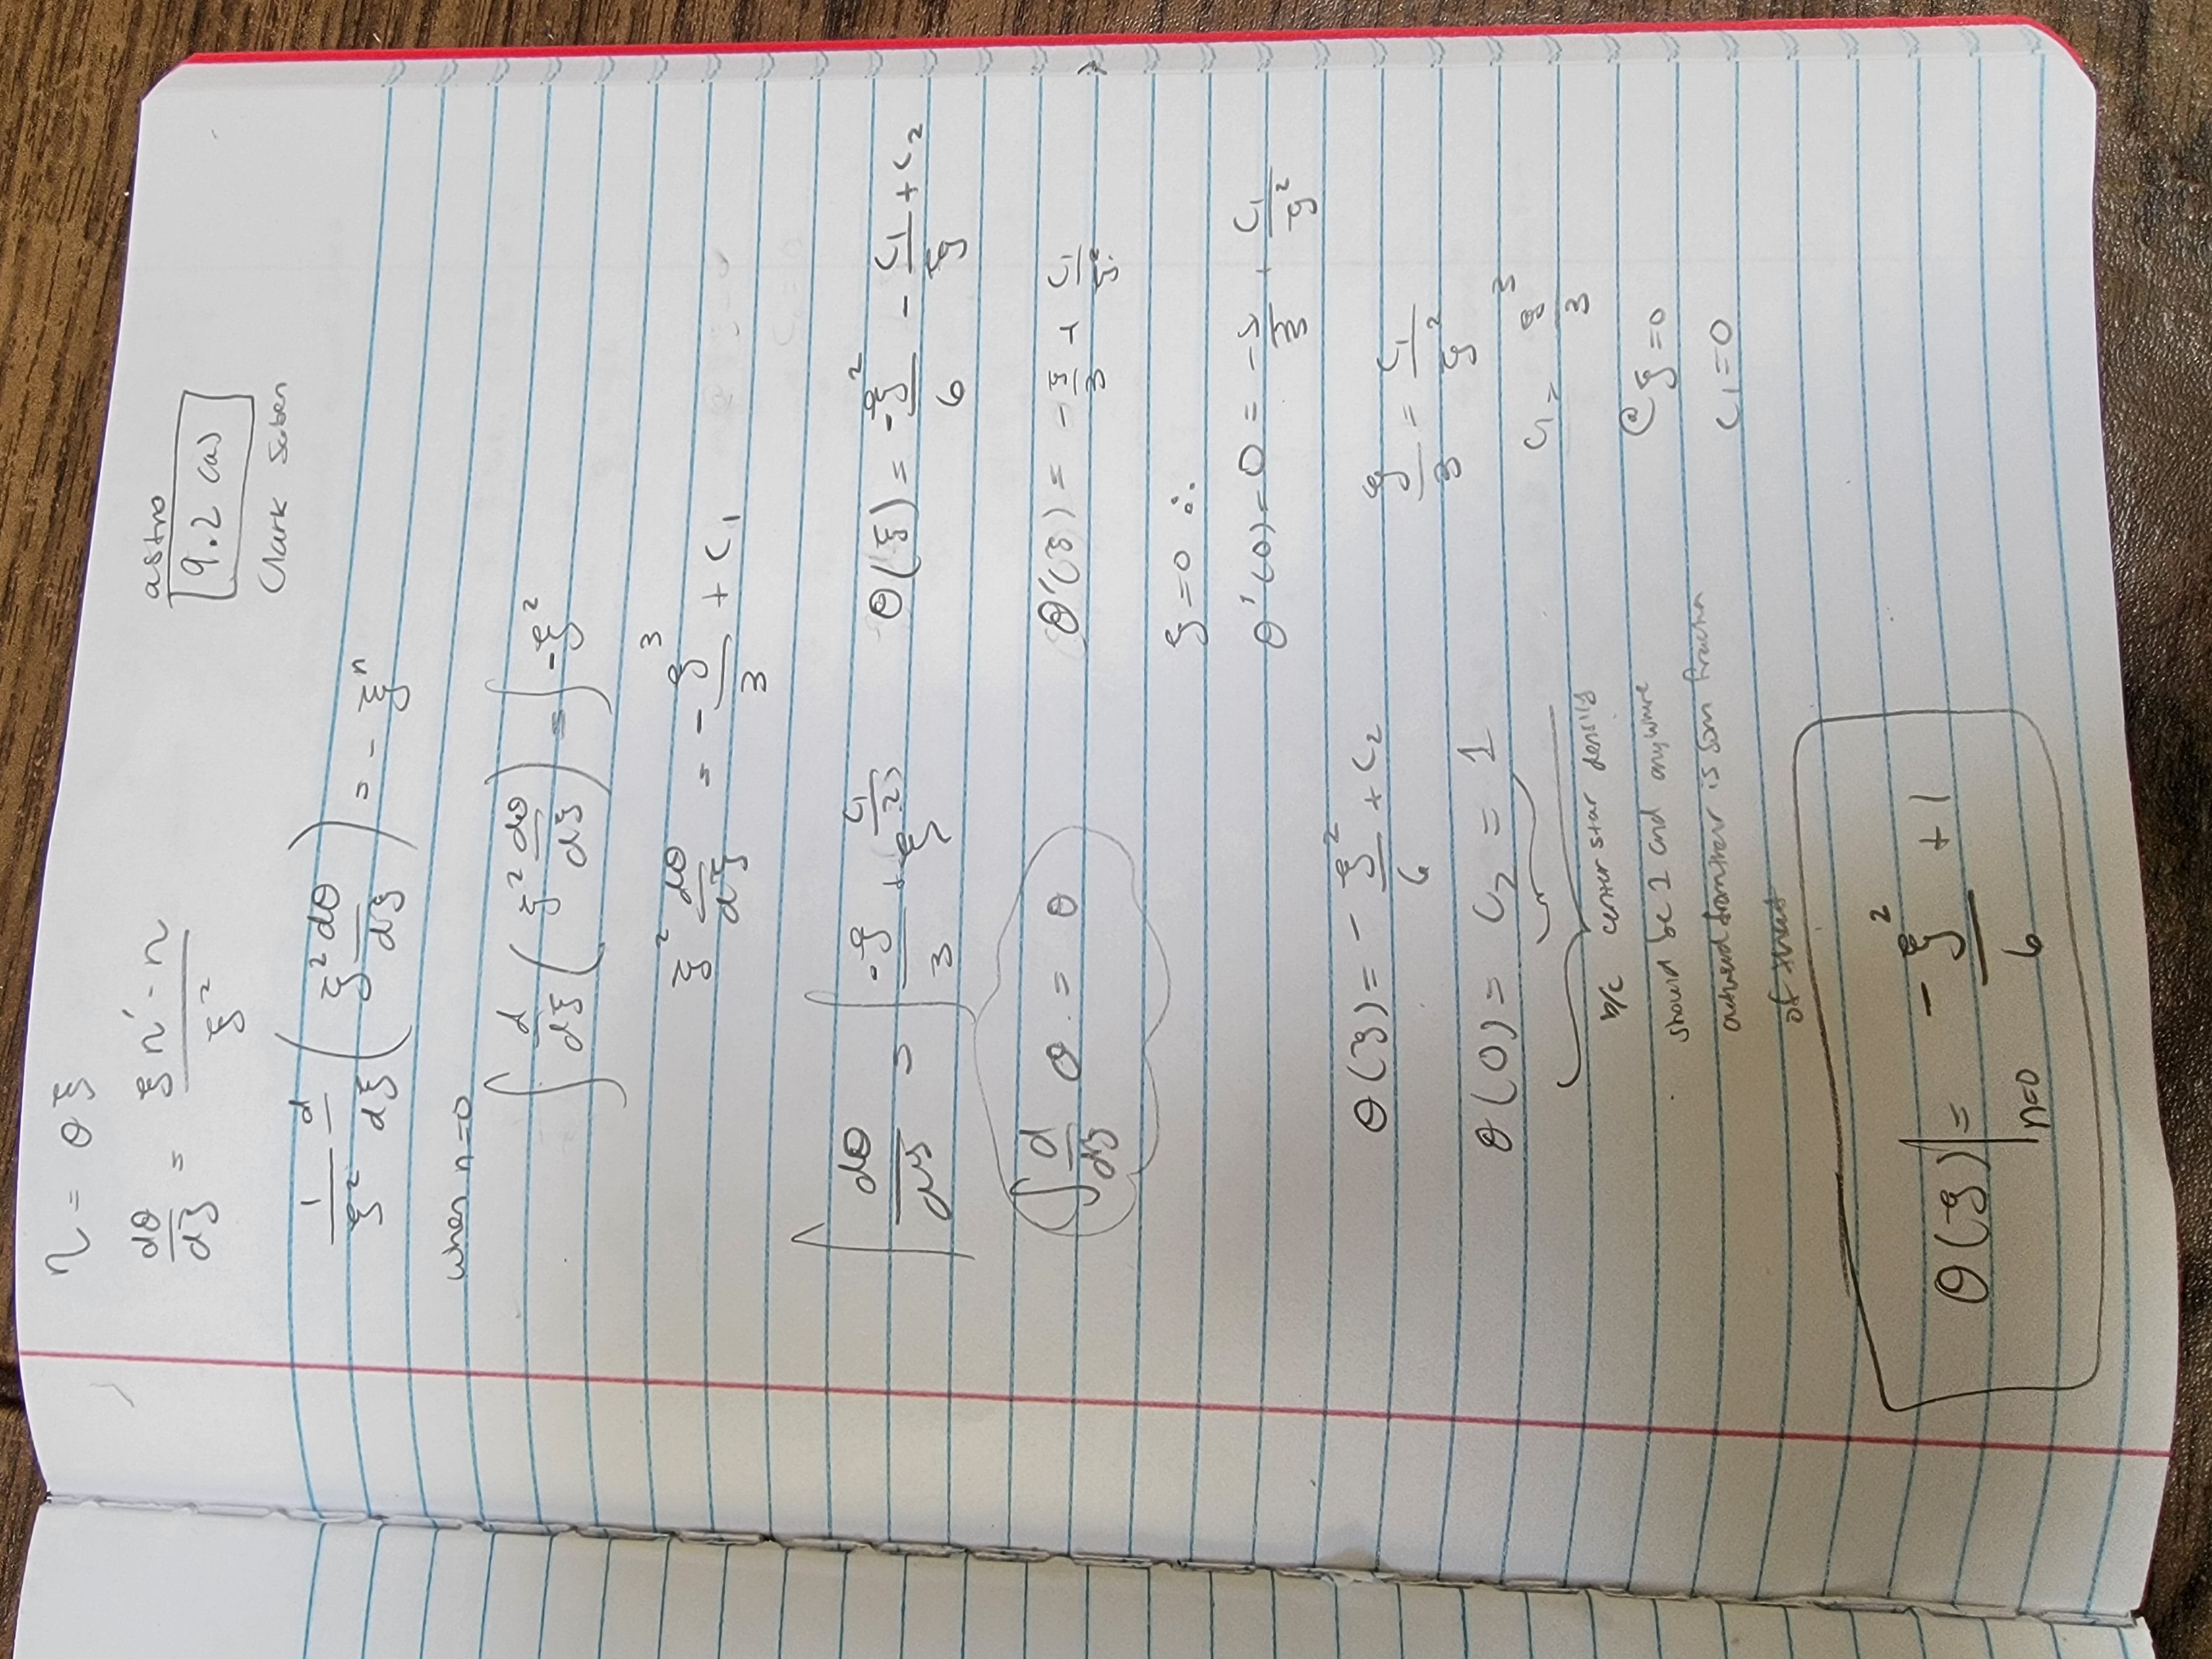 η = θξ
dθ/dξ = (ξη' - η)/ξ²
astro
9.2 (a)
Clark Saben
1/ξ² d/dξ ( ξ² dθ/dξ ) = - ξⁿ
when n=0
∫ d/dξ ( ξ² dθ/dξ ) = ∫ -ξ²
ξ² dθ/dξ = - ξ³/3 + C₁
∫ dθ/dξ = ∫ -ξ/3 + C₁/ξ²
θ(ξ) = -ξ²/6 - C₁/ξ + C₂
∫ d/dξ θ = θ
θ'(ξ) = -ξ/3 + C₁/ξ²
ξ=0 ∴
θ'(0) = 0 = -ξ/3 + C₁/ξ²
θ(ξ) = - ξ²/6 + C₂
ξ/3 = C₁/ξ²
θ(0) = C₂ = 1
C₁ = ξ³/3
b/c center star density
should be 1 and anywhere
@ ξ=0
outward from there is som fraction
C₁=0
of that
θ(ξ)|n=0 = -ξ²/6 + 1